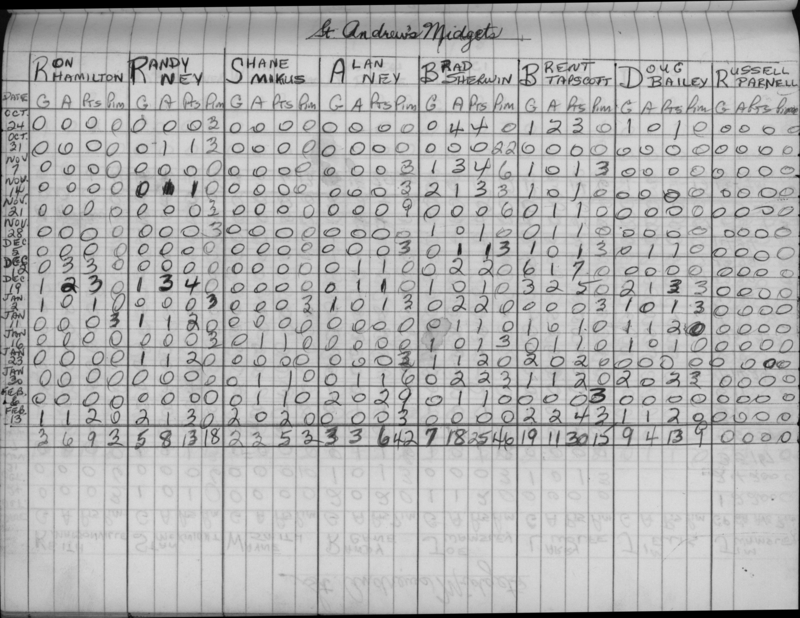 St Andrew's Midgets
RON HAMILTON RANDY NEY SHANE MIKUS ALAN NEY BRAD SHERWIN BRENT TAPSCOTT DOUG BAILEY RUSSELL PARNELL
DATE G A Pts Pim G A Pts Pim G A Pts Pim G A Pts Pim G A Pts Pim G A Pts Pim G A Pts Pim G A Pts Pim
OCT. 24 0 0 0 0 0 0 0 3 0 0 0 0 0 0 0 0 0 4 4 0 1 2 3 0 1 0 1 0 0 0 0 0
OCT. 31 0 0 0 0 0 1 1 3 0 0 0 0 0 0 0 0 0 0 0 22 0 0 0 0 0 0 0 0 0 0 0 0
NOV. 7 0 0 0 0 0 0 0 0 0 0 0 0 0 0 0 3 1 3 4 6 1 0 1 3 0 0 0 0 0 0 0 0
NOV. 14 0 0 0 0 0 1 1 0 0 0 0 0 0 0 0 3 2 1 3 3 1 0 1 0 0 0 0 0 0 0 0 0
NOV. 21 0 0 0 0 0 0 0 3 0 0 0 0 0 0 0 9 0 0 0 6 0 1 1 0 0 0 0 0 0 0 0 0
NOV. 28 0 0 0 0 0 0 0 3 0 0 0 0 0 0 0 0 1 0 1 0 0 1 1 0 0 0 0 0 0 0 0 0
DEC 5 0 0 0 0 0 0 0 0 0 0 0 0 0 0 0 3 0 1 1 3 1 0 1 3 0 1 1 0 0 0 0 0
DEC 12 0 3 3 0 0 0 0 0 0 0 0 0 0 1 1 0 0 2 2 0 6 1 7 0 0 0 0 0 0 0 0 0
DEC 19 1 2 3 0 1 3 4 0 0 0 0 0 0 1 1 0 1 0 1 0 3 2 5 0 2 1 3 3 0 0 0 0
JAN 2 1 0 1 0 0 0 0 3 0 0 0 3 1 0 1 3 0 2 2 0 0 0 0 3 1 0 1 3 0 0 0 0
JAN 11 0 0 0 3 1 1 2 0 0 0 0 0 0 0 0 0 0 1 1 0 1 0 1 0 1 1 2 0 0 0 0 0
JAN 16 0 0 0 0 0 0 0 3 0 1 1 0 0 0 0 0 1 0 1 3 0 1 1 0 1 0 1 0 0 0 0 0
JAN 23 0 0 0 0 1 1 2 0 0 0 0 0 0 0 0 3 1 1 2 0 2 0 2 0 0 0 0 0 0 0 0 0
JAN 30 0 0 0 0 0 0 0 0 0 1 1 0 0 1 1 6 0 2 2 3 1 1 2 0 2 0 2 3 0 0 0 0
FEB. 6 0 0 0 0 0 0 0 0 0 1 1 0 2 0 2 9 0 1 1 0 0 0 0 3 0 0 0 0
FEB. 13 1 1 2 0 2 1 3 0 2 0 2 0 0 0 0 3 0 0 0 0 2 2 4 3 1 1 2 0 0 0 0 0
3 6 9 3 5 8 13 18 2 3 5 3 3 3 6 42 7 18 25 46 19 11 30 15 9 4 13 9 0 0 0 0